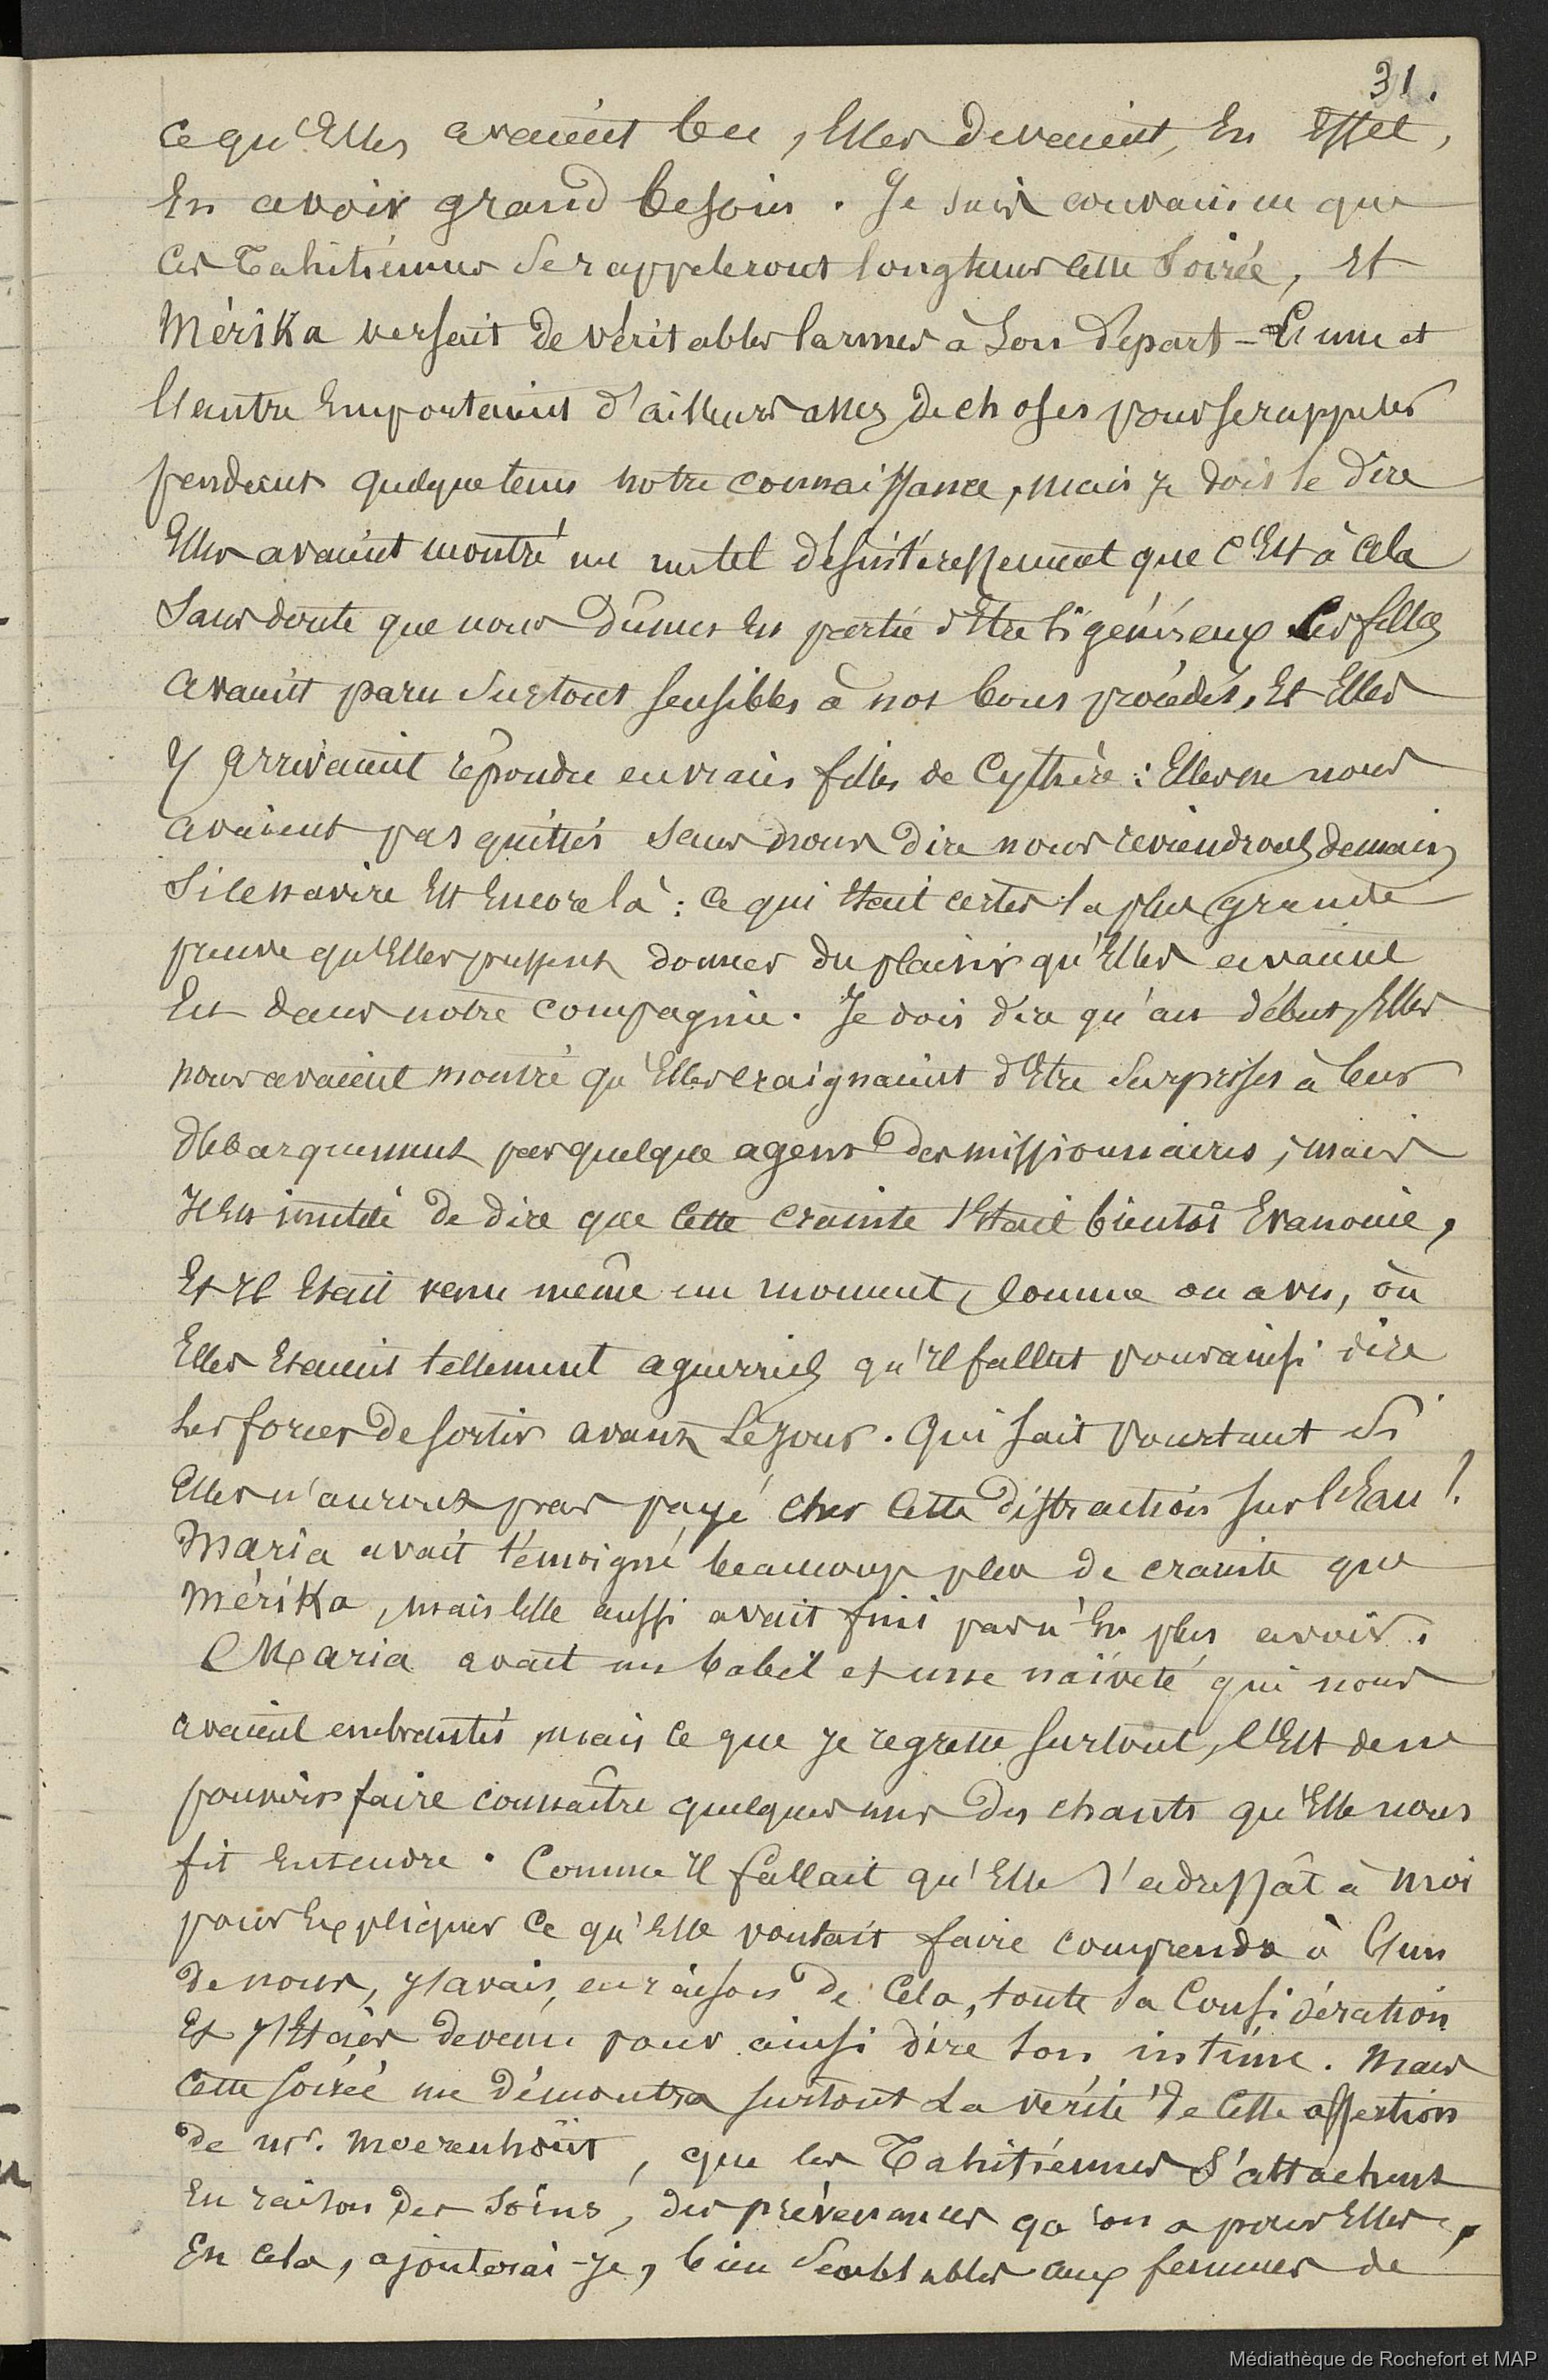 31.
ce qu'Elles avaient bu, Elles devaient, En Effet,
En avoir grand besoin. Je suis convaincu que
ces Tahitiennes se rappeleront longtems cette soirée, Et
Mérika versait de véritables larmes à son départ - L'une et
l'autre Emportaient d'ailleurs assez de choses pour se rappeler
pendant quelque tems notre connaissance, mais je dois le dire
Elles avaient montré un tel désintéressement que c'Est à cela
sans doute que nous dûmes En partie d'Etre si généreux. Ces filles
avaient paru surtout sensibles à nos bons procédés, Et Elles
y arrivaient répondre en vraies filles de Cythère : Elles ne nous
avaient pas quittés sans nous dire nous reviendrons demain
si le navire Est Encore là : ce qui Etait certes la plus grande
preuve qu'Elles pussent donner du plaisir qu'Elles avaient
Eu dans notre compagnie. Je dois dire qu'au début, Elles
nous avaient montré qu'Elles craignaient d'Etre surprises à leur
débarquement par quelque agent des missionnaires, mais
il Est inutile de dire que cette crainte s'Etait bientôt Evanouie,
Et il Etait venu même un moment, comme on a vu, où
Elles Etaient tellement aguerries qu'il fallut pour ainsi dire
les forcer de sortir avant le jour. Qui sait pourtant si
Elles n'auront pas payé cher cette distraction sur l'Eau !
Maria avait témoigné beaucoup plus de crainte que
Mérika, mais Elle aussi avait fini par n'En plus avoir.
Maria avait un babil et une naïveté qui nous
avaient mais ce que je regrette surtout, c'Est de ne
pouvoir faire connaître quelques uns des chants qu'Elle nous
fit Entendre. Comme il fallait qu'Elle s'adressât à moi
pour Expliquer ce qu'Elle voulait faire comprendre à l'un
de nous, j'avais, en raison de cela, toute sa considération
Et j'Etais devenu pour ainsi dire son intime. Mais
cette soirée me démontra surtout la vérité de cette assertion
de mr. Moerenhoüt, que les Tahitiennes s'attachent
En raison des soins, des prévenances qu'on a pour Elles,
En cela, ajouterai-je, bien semblables aux femmes de
Médiathèque de Rochefort et MAP